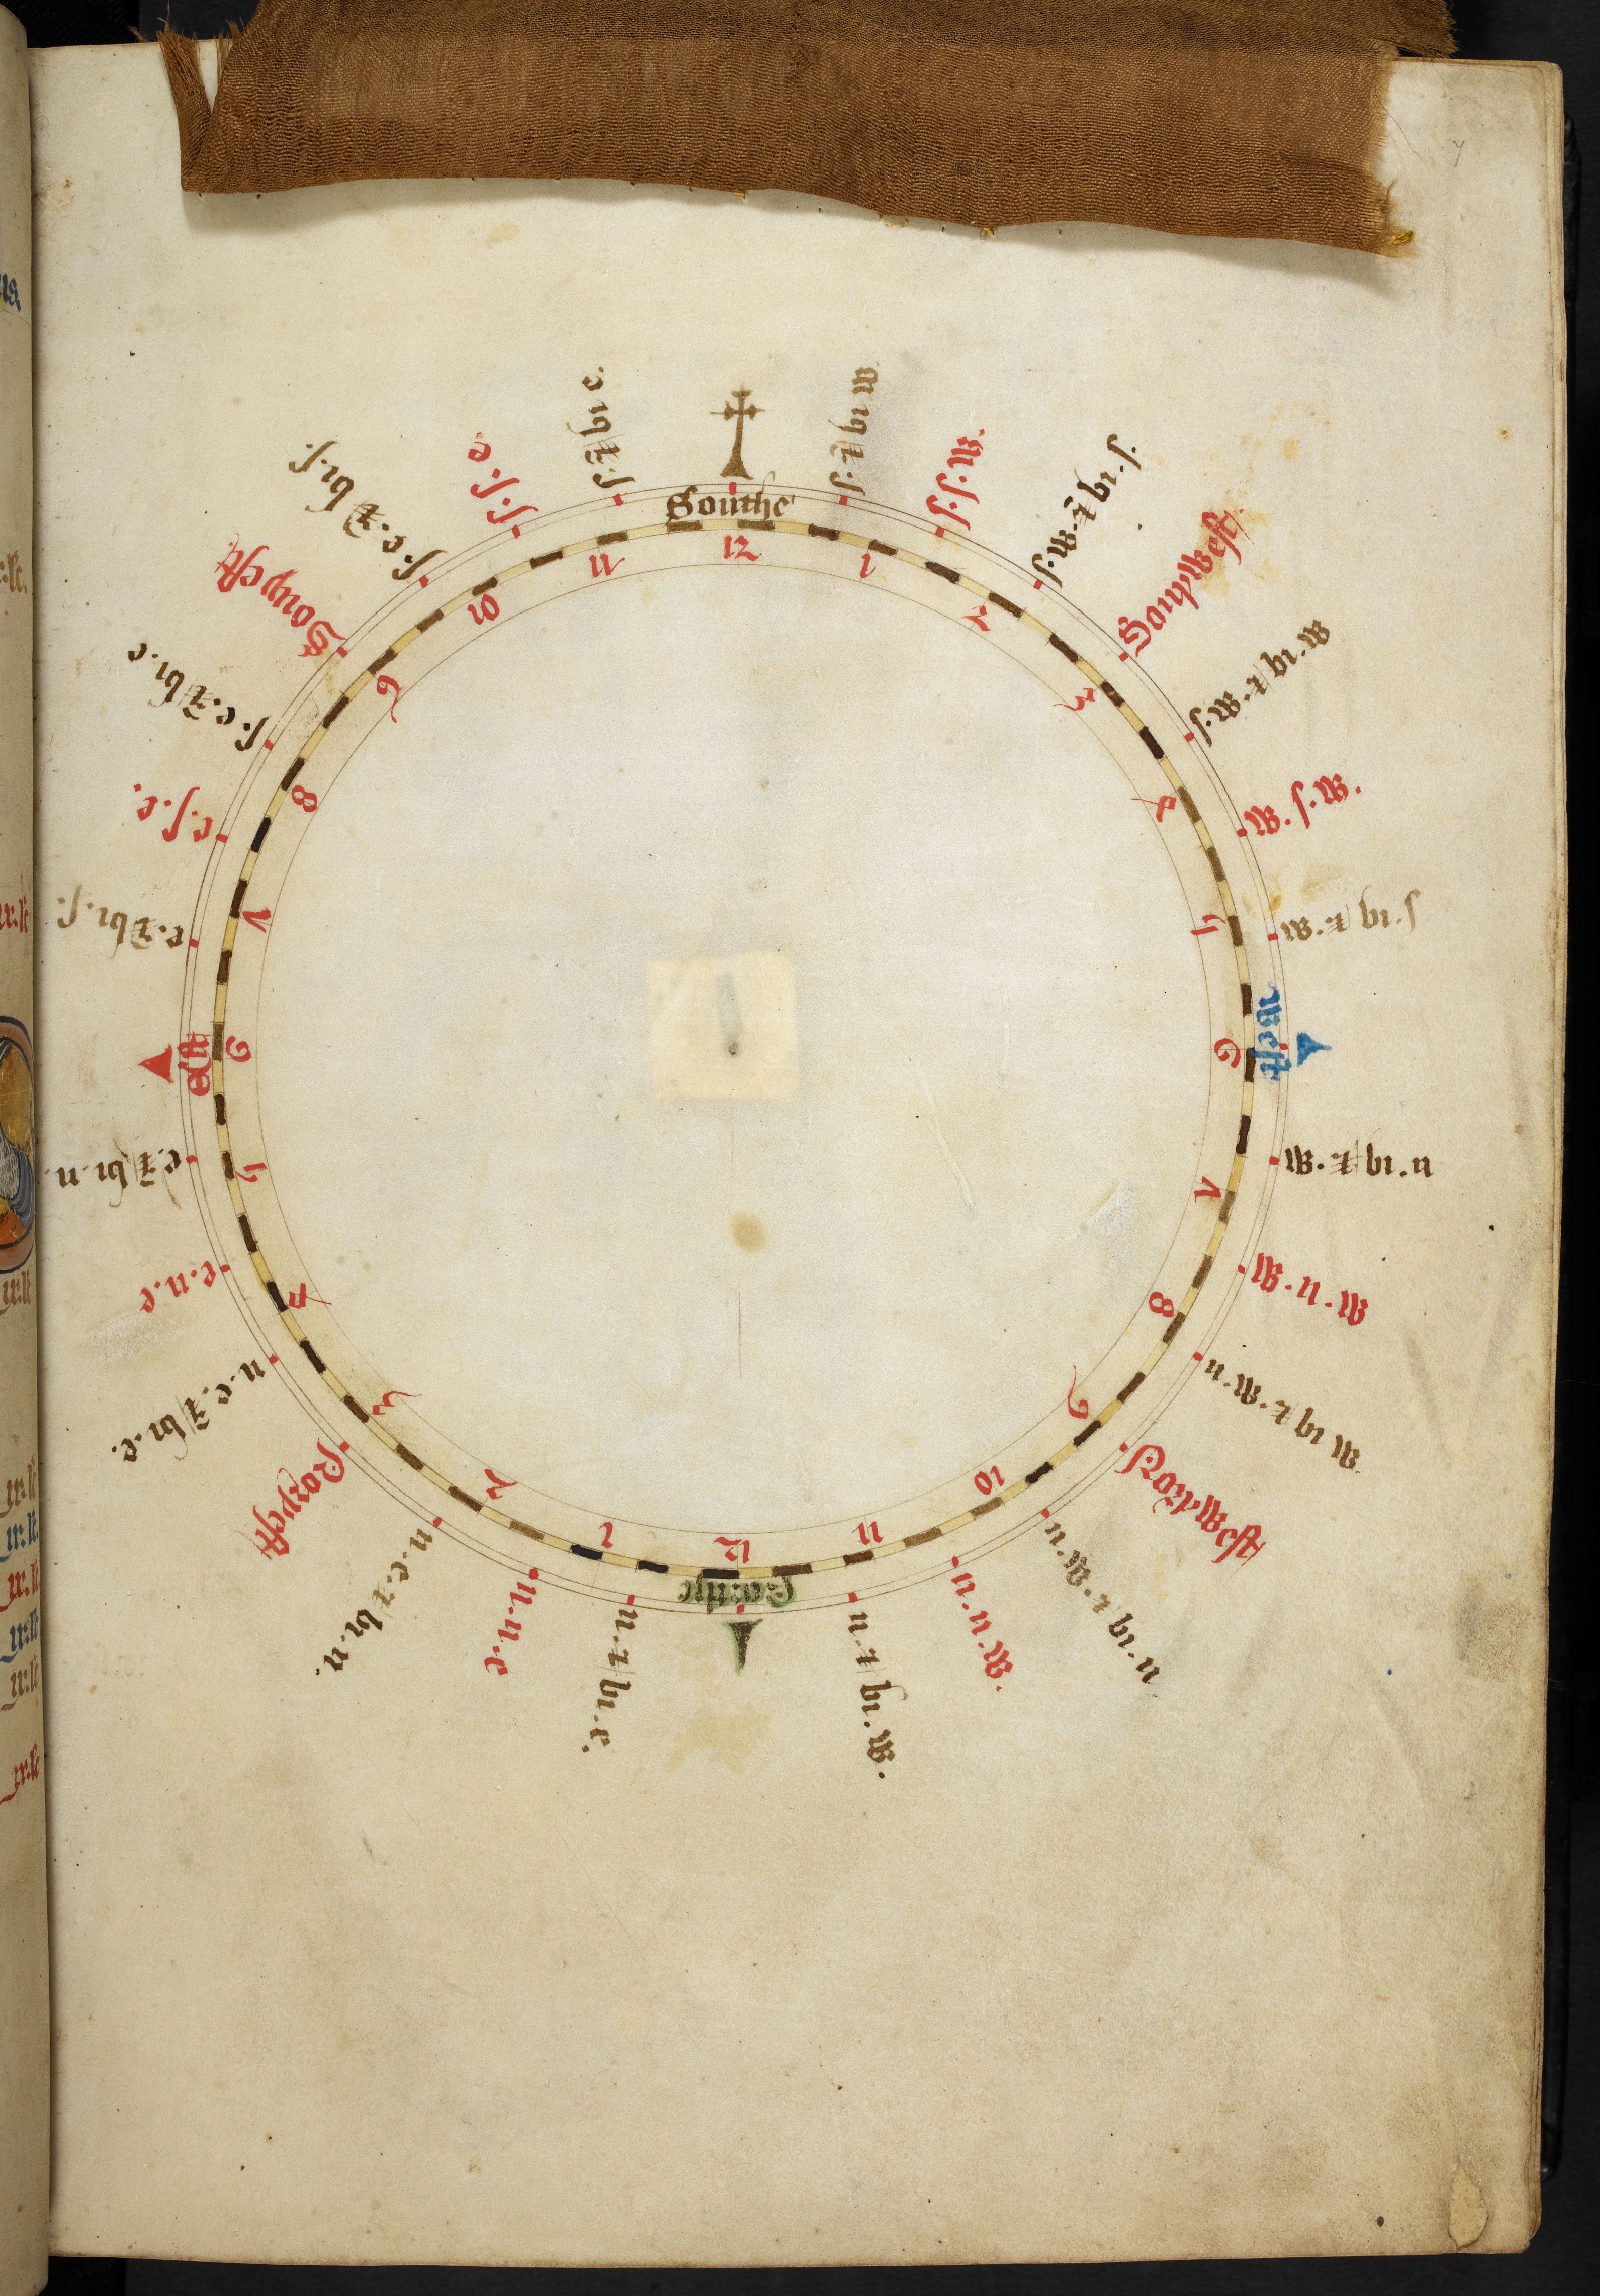 Southe
s. ⁊ bi w
s. s. w.
s. w. ⁊ bi. s.
Southwest
s. w. ⁊ bi. w
w. s. w.
w. ⁊ bi. s
West
w. ⁊ bi. n
w. n. w
n. w. ⁊ bi w
Northwest
n. w. ⁊ bi n
n. n. w.
n. ⁊ bi. w.
n. ⁊ bi. e.
n. n. e
n. e. ⁊ bi. n.
Norþest
n. e. ⁊ bi. e.
e. n. e
e. ⁊ bi. n.
est
e. ⁊ bi. s.
e. s. e.
s. e. ⁊ bi. e
Souþest
s. e. ⁊ bi. s.
s. s. e
s. ⁊ bi e.
12
1
2
3
4
5
6
7
8
9
10
11
12
1
2
3
4
5
6
7
8
9
10
11